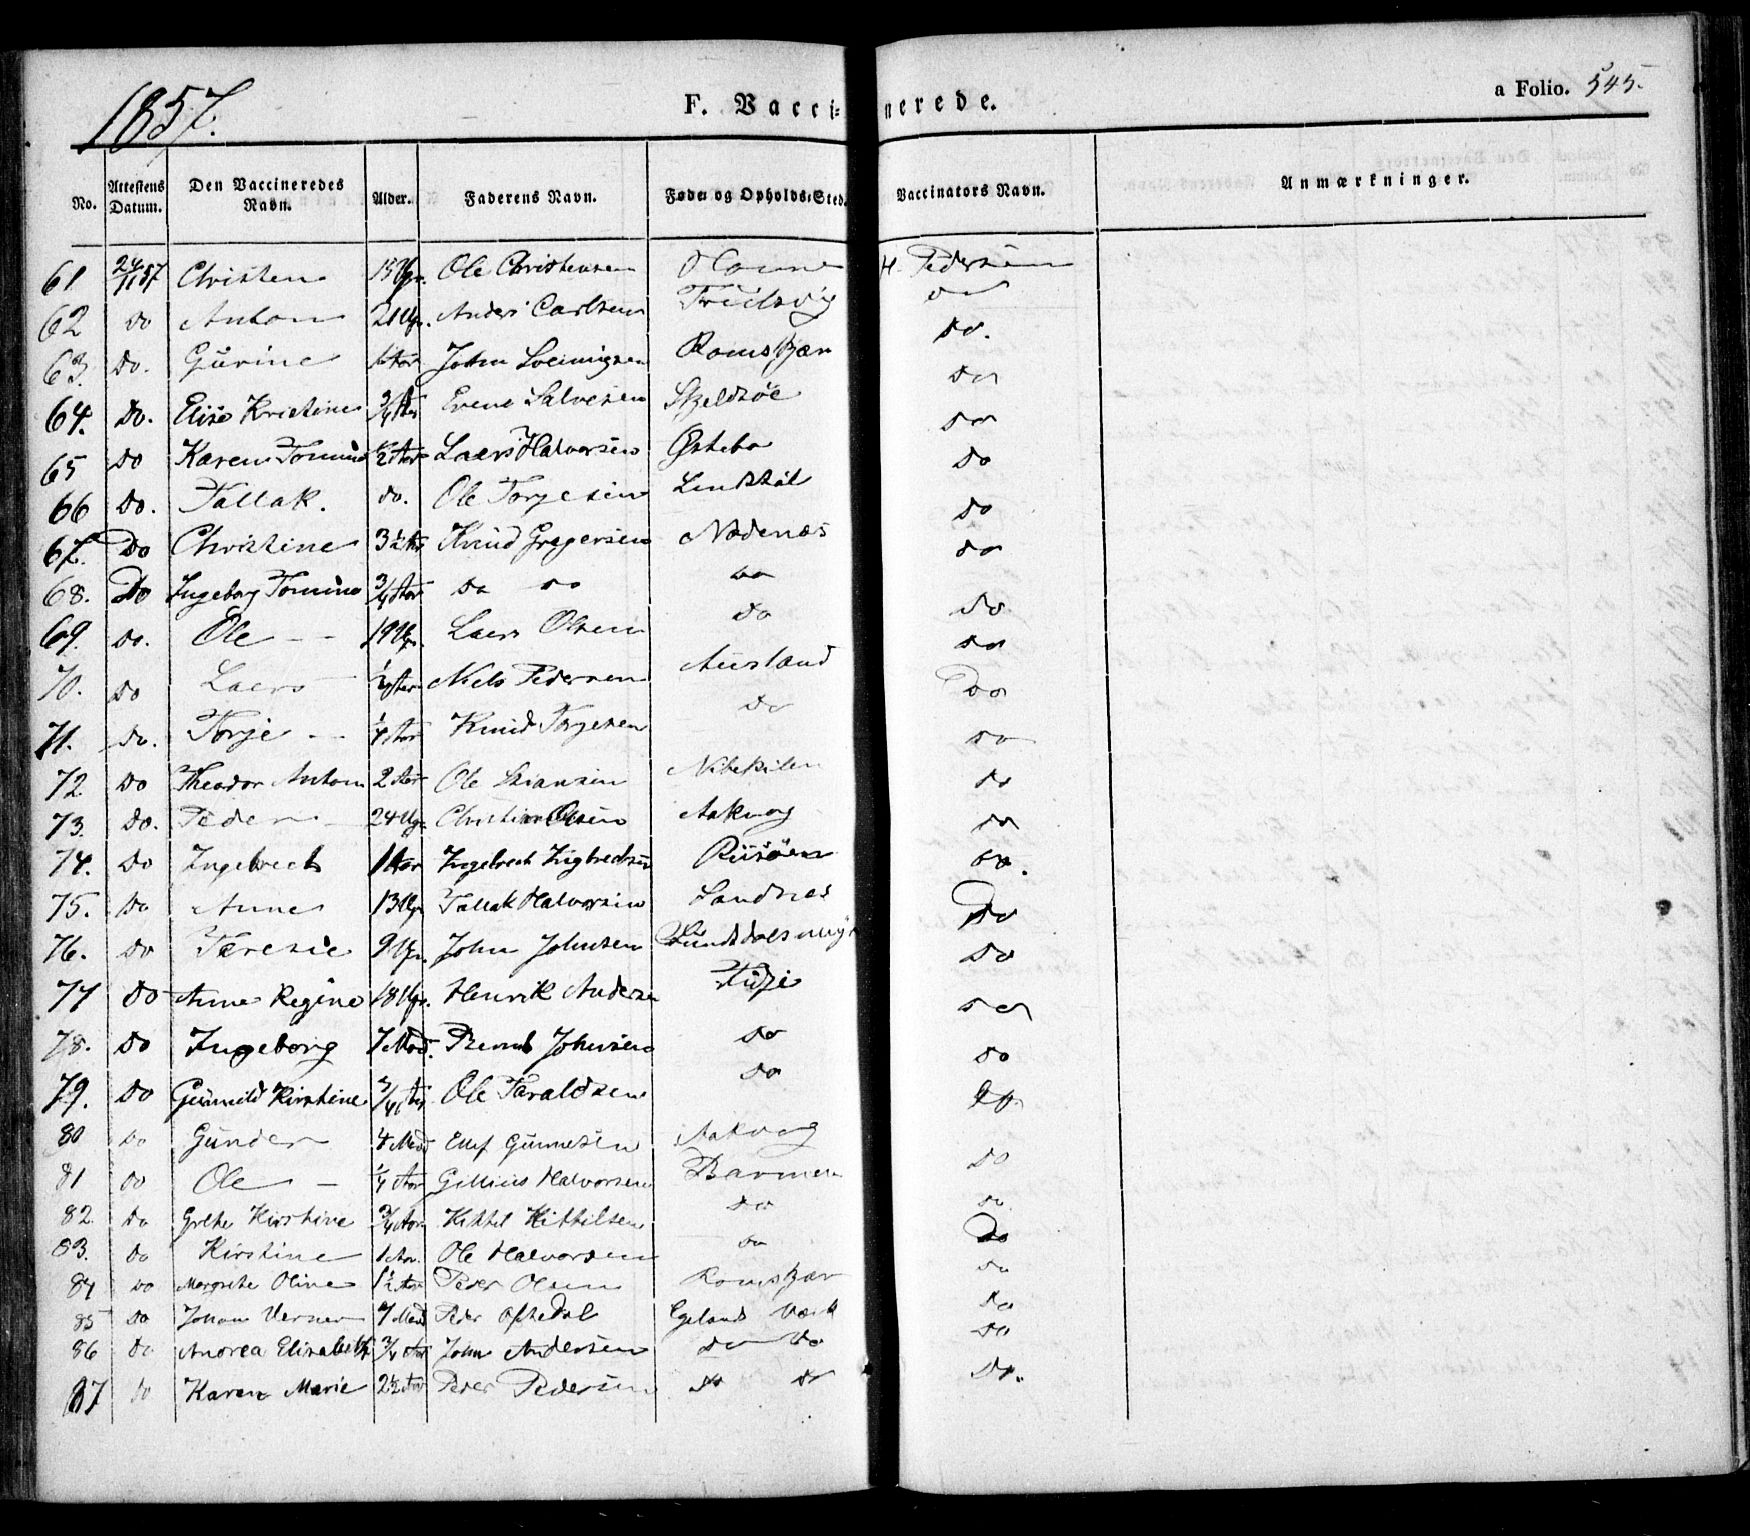 1857.
F. Vaccinerede.
a Folio. 545.
No. Attestens Datum. Den Vaccineredes Navn. Alder. Faderens Navn. Føde- og Opholds-Sted. Vaccinators Navn. Anmærkninger.
61 24/11 57 Christen 15 Ugr. Ole Christensen H. Pedersen
62 do Anton 21 Ugr. Anders Carlsen do
63. do. Gurine John do.
64. Do. Elise Kristine 3/4 Aar Even Salvesen Skjeldsøe do
65 do Karen 1/2 Aar Laers Halvorsen Østebø do
66 do. Tallak. do. Ole Torjesen Lindstøl do
67. Do Christine 3 1/2 Aar Knud Gregersen Nødenæs do
68. Do Ingeborg 3/4 Aar do do do do
69. do. Ole 19 Ugr. Laers Olsen do do
70. do Laers 1/4 Aar Niels Pedersen Ausland do
71. do. Torje 1/4 Aar Knud Torjesen do Do
72 do Theodor Anton 2 Aar Ole do
73. do. Peder 24 Ugr. Christian Olsen Aakvog do
74. Do Ingebrech 1 Aar Ingebrech do
75. do Anne 13 Ugr Tallak Halvorsen Sandnes do.
76. do Teresie 9 Ugr. John Johnsen Do
77 do Anne Regine 18 Ugr. Henrik Andersen do
78. do Ingeborg 7 Mad. Bernt Johnsen do do
79. do Gunnild Kirstine 3/4 Aar Ole Taraldsen do do
80 do Gunder 4 Mad Aakvog do
81 do Ole 1/4 Aar Halvorsen Barmen do
82. do Grethe Kirstine 3/4 Aar Kittel Kittilsen do do
83. do Kirstine 1 Aar. Ole Halvorsen do Do
84 do Margrethe Oline 1 1/2 Aar Peder Olsen do
85 do Johan Verner 7 Mad Peder Oftedal Egelands Værk do
86 do Andrea Elisabeth 3/4 Aar John Andersen do do do
87 do Karen Marie 2 1/2 Aar Peder Pedersen do do do.